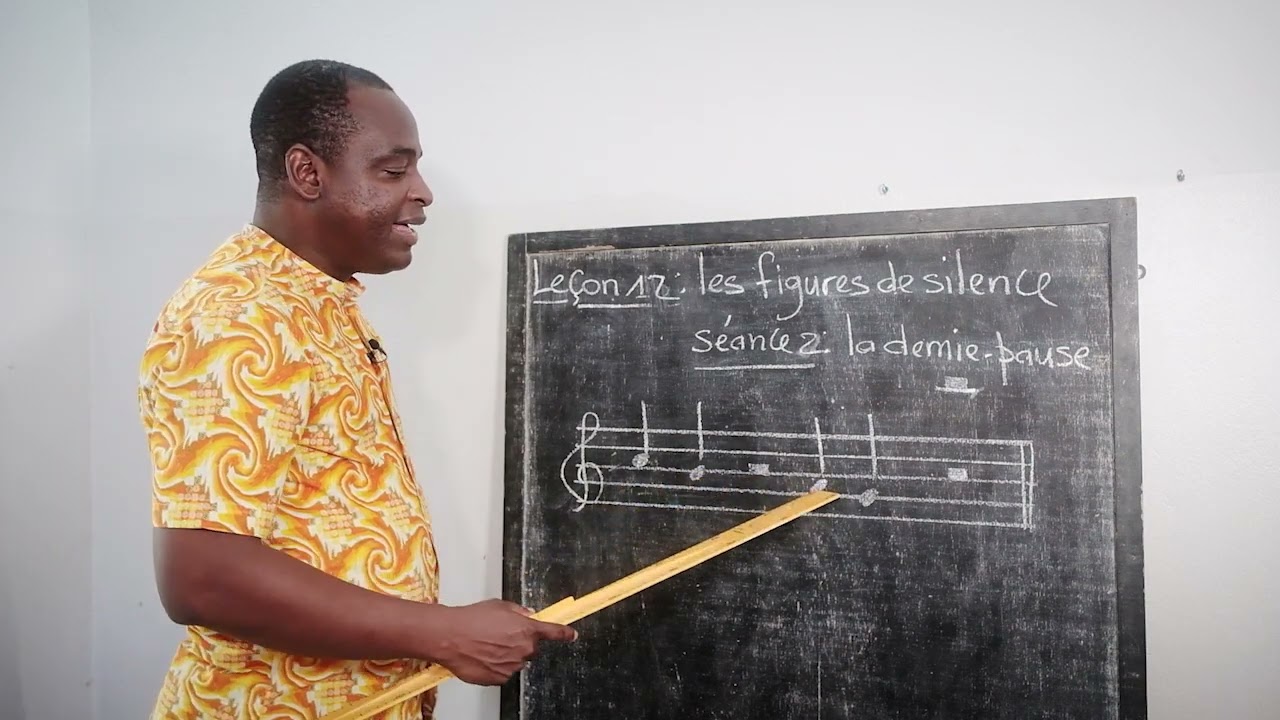 Leçon 12: les figures de silence
séance 2: la demie-pause